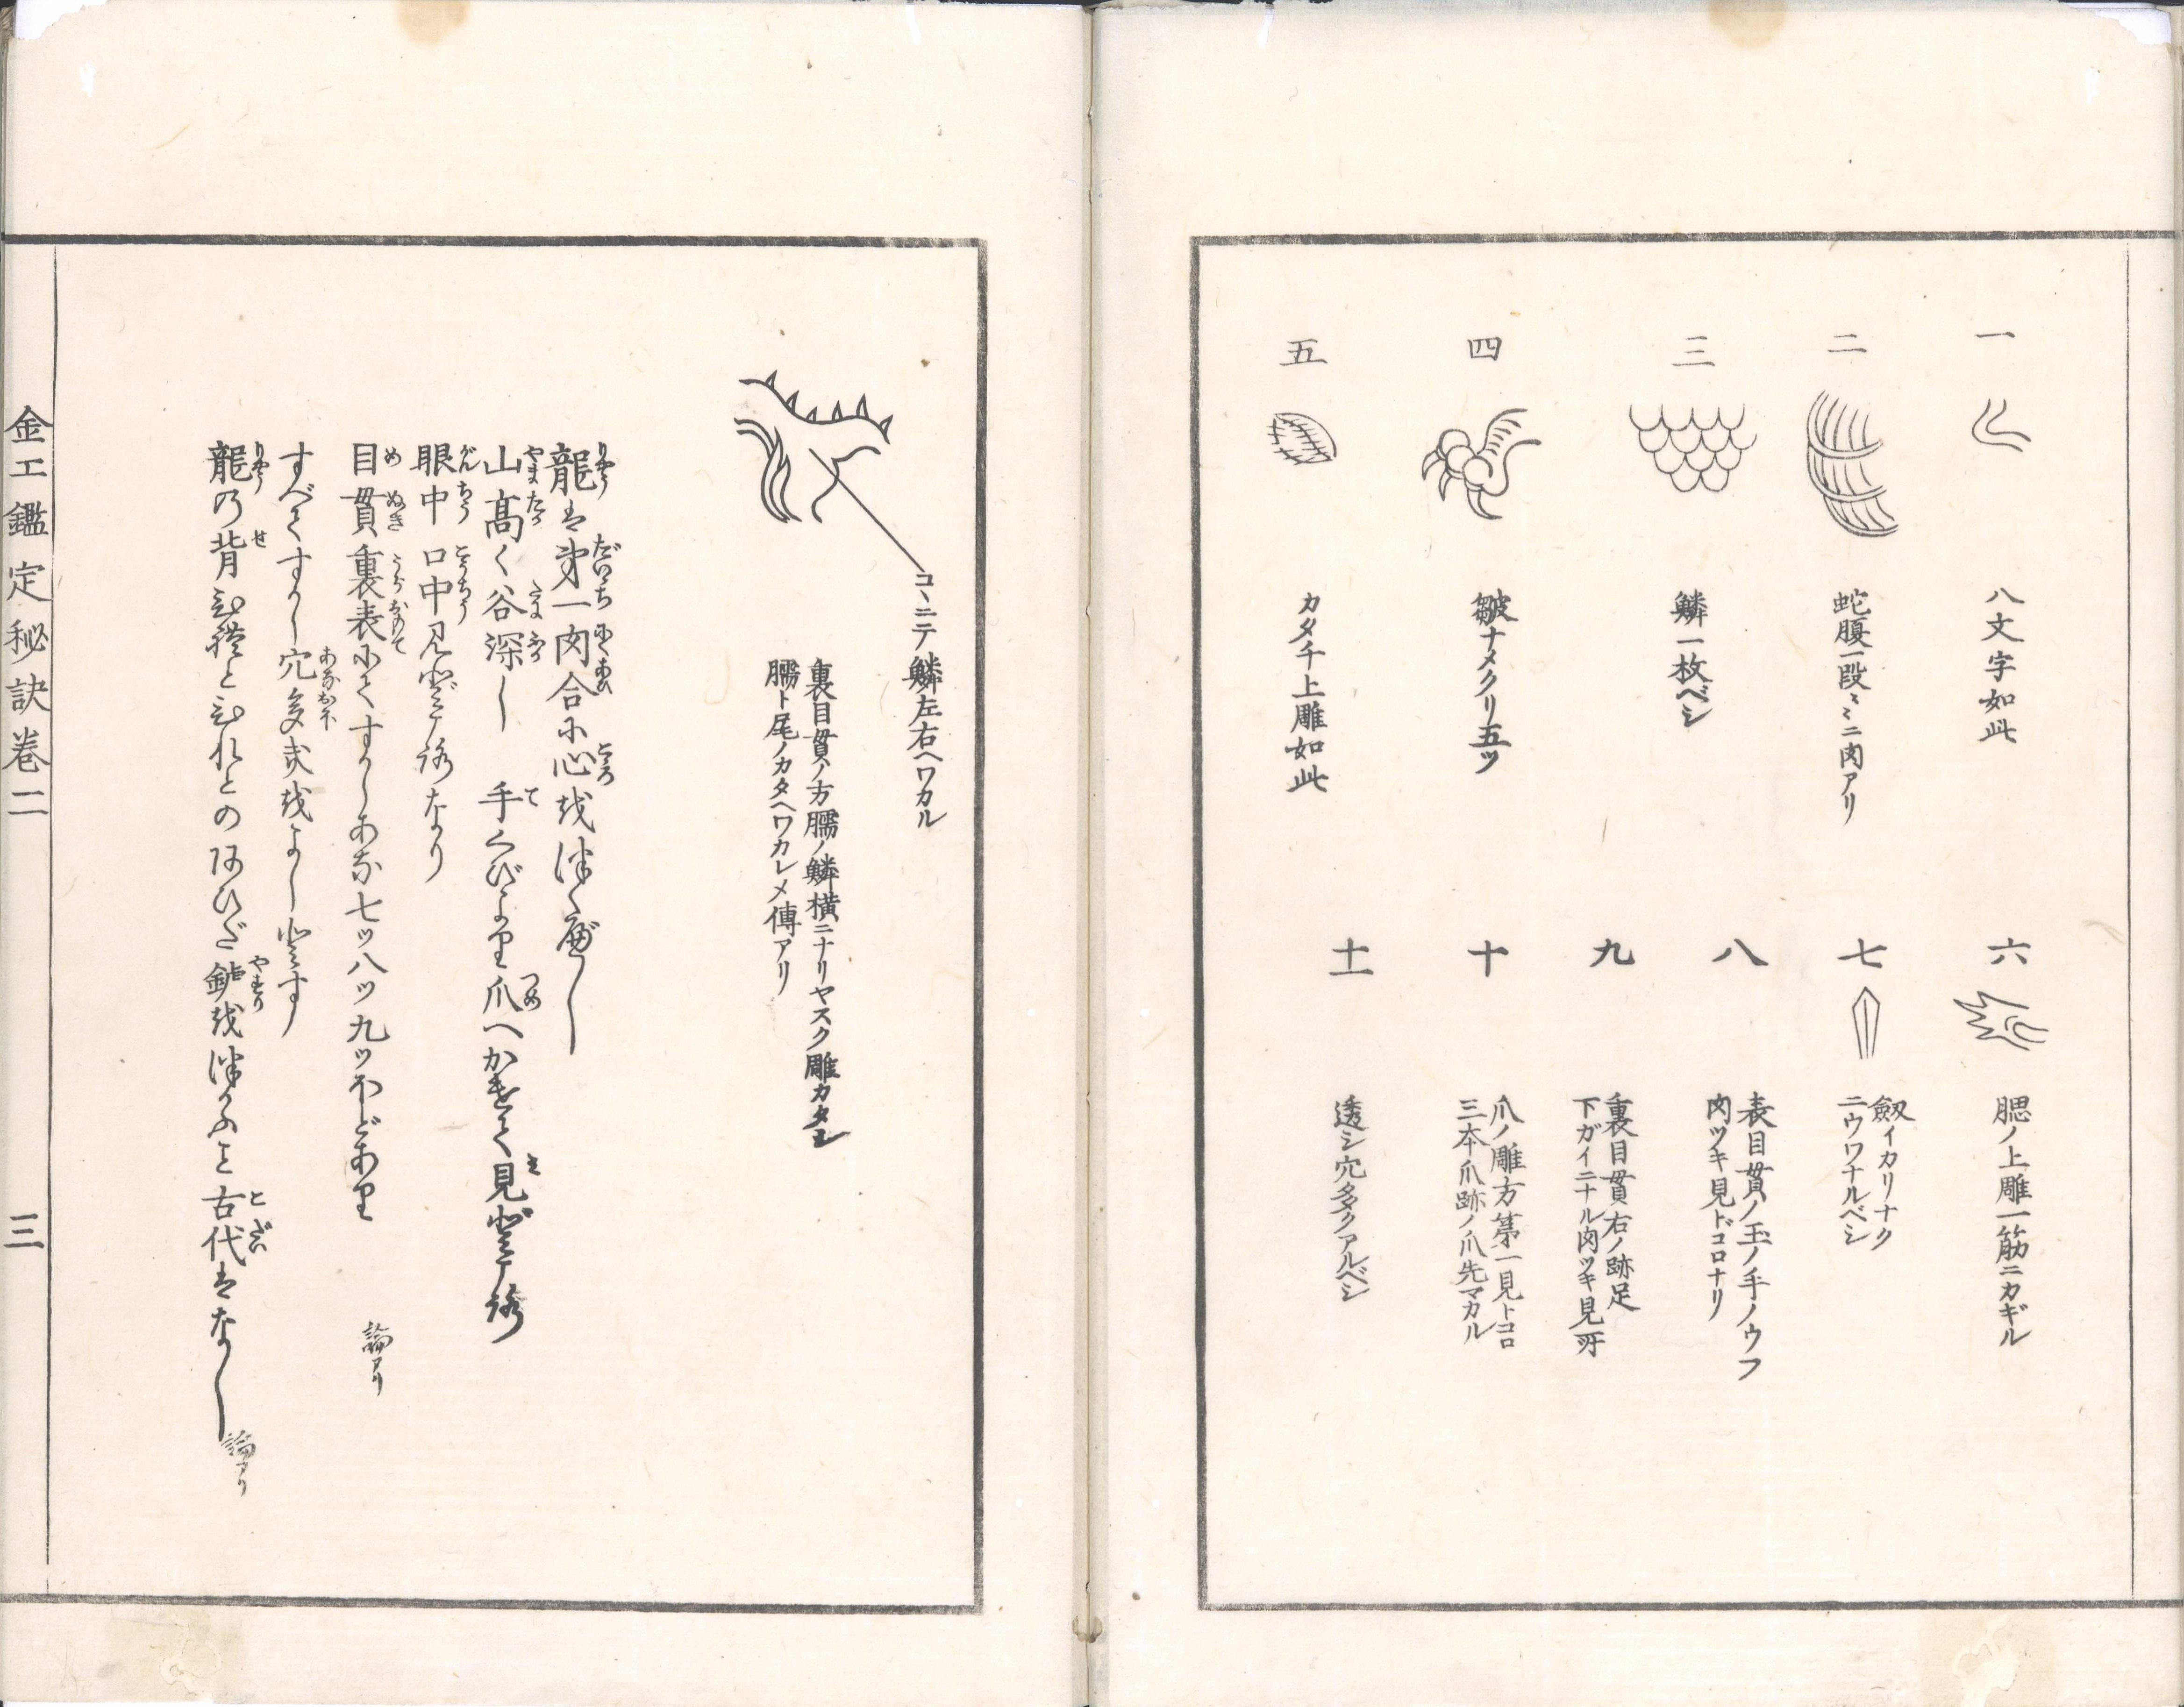 一
八文字如此
二
蛇腹一段〻ミニ肉アリ
三
鱗一枚ベシ
四
皺ナメクリ五ツ
五
カタチ上雕如此
六
腮ノ上雕一筋ニカギル
七
劔イカリナク
ニウワナルベシ
八
表目貫ノ玉ノ手ノウフ
肉ツキ見ドコロナリ
九
裏目貫右ノ跡足
下ガイニナル肉ツキ見所
十
爪ノ雕方第一見トコロ
三本爪跡ノ爪先マカル
十一
透シ穴多クアルベシ
コヽニテ鱗左右ヘワカル
裏目貫ノ方臑ノ鱗横ニナリヤスク雕カタシ
臑ト尾ノカタヘワカレメ傳アリ
龍は第一肉合に心越津く遍し
山高く谷深し 手くびより爪へかけて見登ころ
眼中口中見どころなり
目貫裏表にてすかしあな七ツ八ツ九ツほどあり 論アリ
すべてすかし穴多きをよしとす
龍の背ひれとひれとのあひだ鈩越津かふこと古代はなし 論アリ
金工鑑定秘訣巻二
三